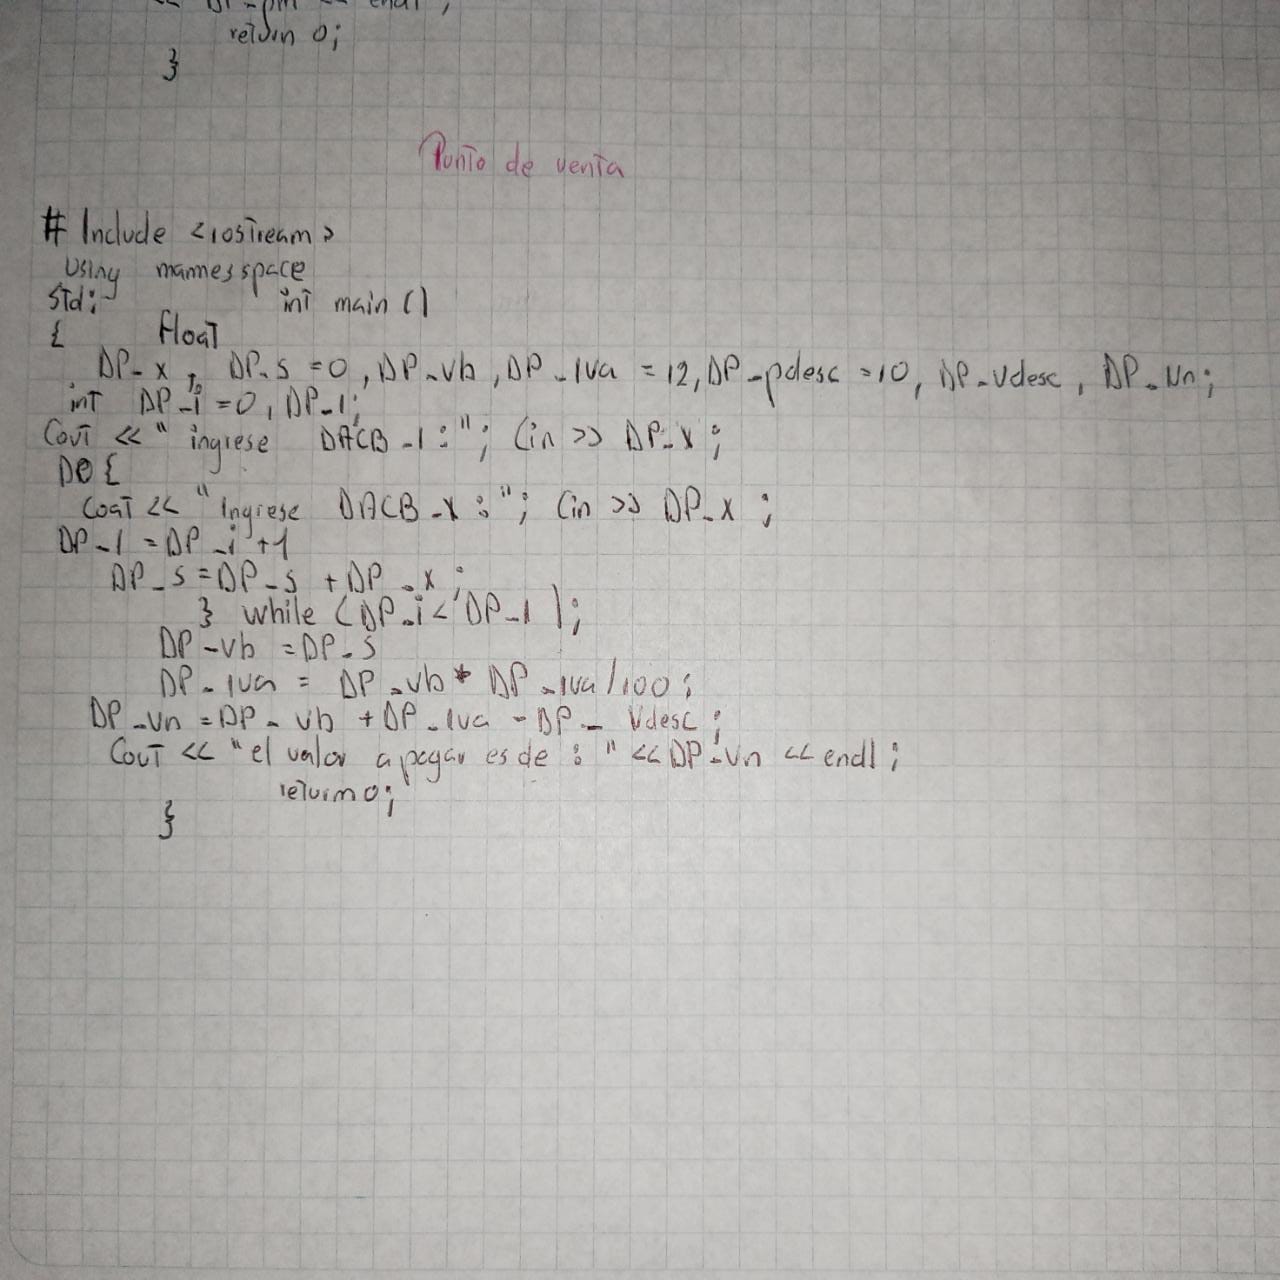 return 0;
}
Punto de venta
# Include <iostream>
Using mannes space
Std; int main ()
{ float
DP_x, DP_s =0, DP_vb, DP_iva = 12, DP_pdesc =10, DP_Vdesc, DP_Vn;
int DP_i =0, DP_1;
Cout << " ingrese DACB_1:"; Cin >> DP_x;
DO {
Coat << "Ingrese DACB_x:"; Cin >> DP_x;
DP_1 = DP_i +1
DP_s = DP_s + DP_x;
} while (DP_i < DP_1);
DP_vb = DP_s
DP_iva = DP_vb * DP_iva/100;
DP_Vn = DP_vb + DP_iva - DP_Vdesc;
Cout << "el valor a pegar es de : " << DP_Vn << endl;
return 0;
}